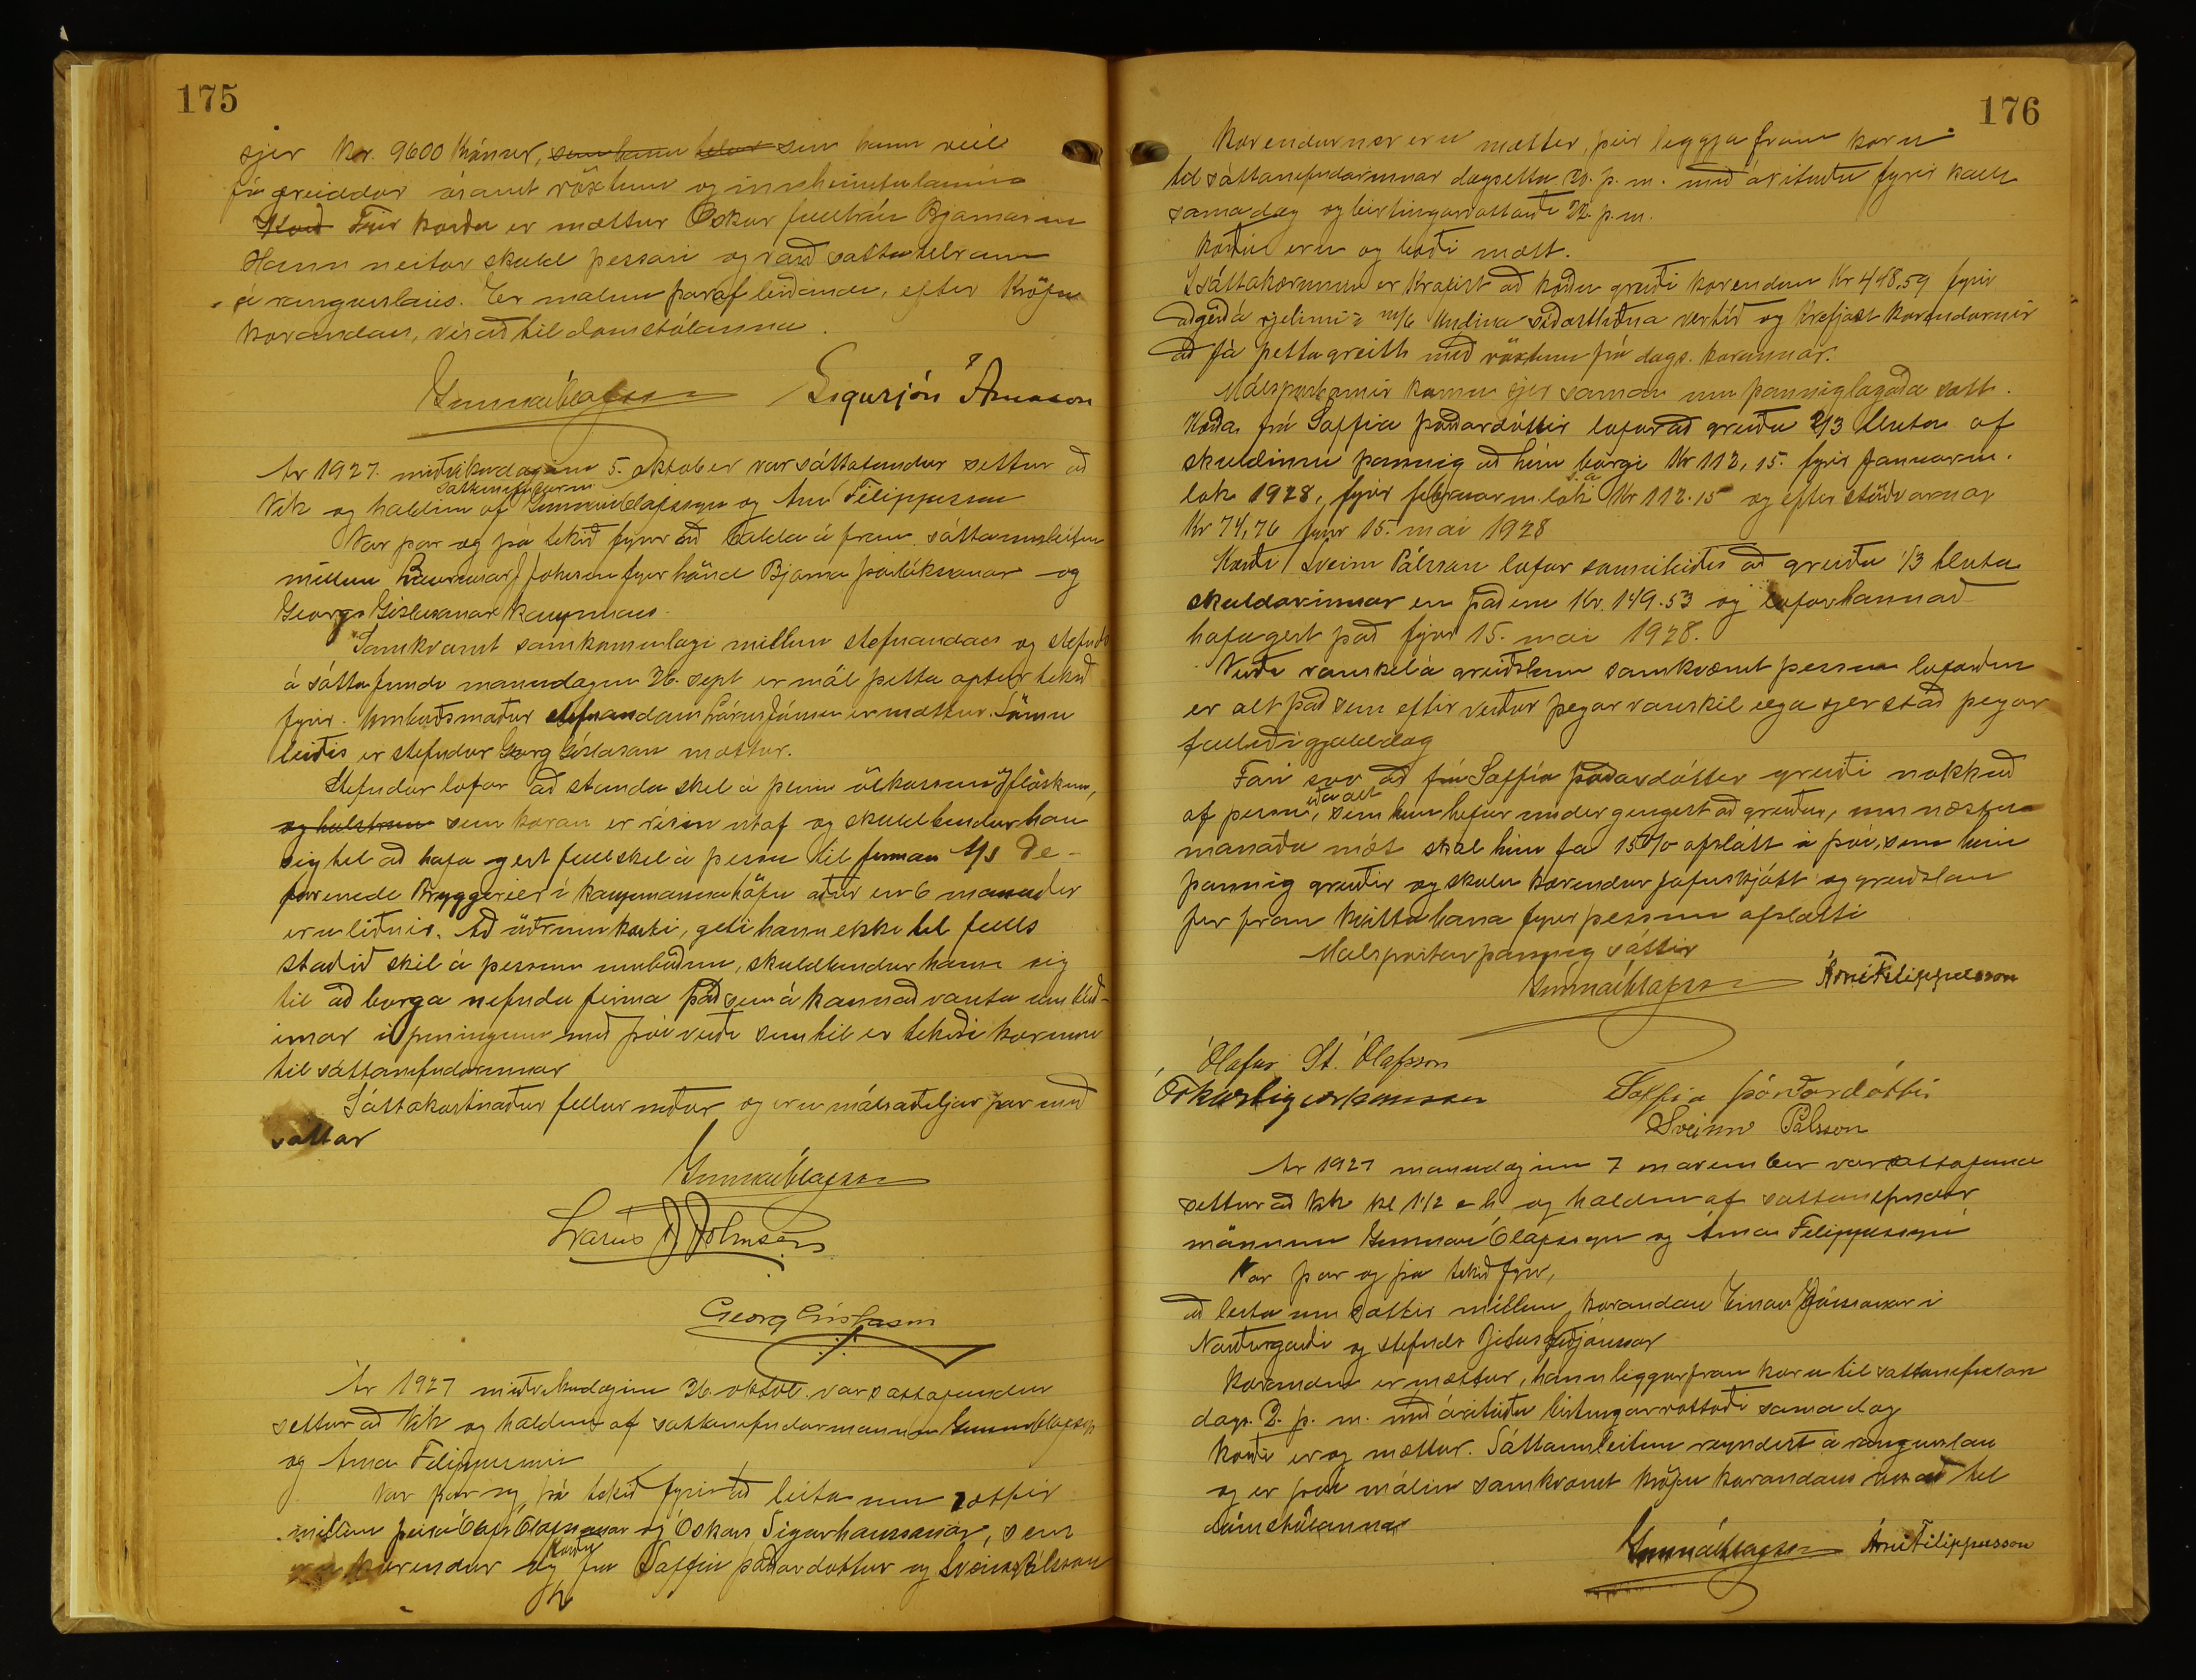 175
sjer kr. 9600 krónur, sem hann telur sem hann vill
fá greiddar ásamt vöxtum og innheimtulaunum
Kærð Fyrir kærða er mættur Óskar fulltrúi Bjarnason
Hann neitar skuld þessari og varð sáttatilraun
árangurslaus. Er málinu þaraf leiðandi, eftir kröfu
kærandans, vísað til domstólanna.
Gunnar Ólafsson Sigurjón Árnason
Ár 1927. miðvikudaginn 5. oktober var sáttafundur settur að
Vik og haldinn af sáttanefndarm. Gunnari Ólafssyni og Árna Filippussyni
Var þar og þá tekið fyrir að halda á fram sáttaumleitun
millum Lárusar J Johnsen fyrir hönd Bjarna Þorlákssonar og
Georgs Gíslasonar kaupmans.
Samkvæmt samkomulagi millum stefnandans og stefnds
á sáttafundi mánudaginn 26. sept er mál þetta aptur tekið
fyrir. Umboðsmaður stefnandans Lárus Jónsen er mættur. Sömu
leiðis er stefndur Georg Gíslason mættur.
Stefndur lofar að standa skil á þeim ölkössum og flöskum,
og hulstrum sem kæran er risin útaf og skuldbindur han
sig til að hafa gert full skil á þessu til firman A/S De-
forenede Bryggerier í Kaupmannahöfn aður en 6 mánuðir
eru liðnir. Að öðrum kosti, geti hann ekki til fulls
staðið skil á þessum umbúðum, skuldbindur hann sig
til að borga nefndu firma það sem á kann að vanta umbúð-
irnar í peningum með því verði sem til er tekið í kærunni
til sáttanefndarinnar
Sáttakostnaður fellur niður og eru málsaðiljar þar með
sáttar
Gunnar Ólafsson
Lárus J Johnsen
Georg Gíslason
Ár 1927 miðvikudaginn 26. oktob. var sáttafundur
settur að Vik og haldinn af sáttanefndarmönnum Gunnari Ólafssyni
og Árna Filippussyni
Var þar og þá tekið fyrir að leita um sættir
millum þeirra Ólafs Ólafssonar og Óskars Sigurhanssonar, sem
eru kærendur og kærðu frú Soffíu Þórðardóttur og Sveins Pálsson
176
Kærendurnir eru mættir, þeir leggja fram kæru
til sáttanefndarinnar dagsetta 20. þ. m. með árituðu fyrir kalli
sama dag og birtingarvottorði 22. þ. m.
Kærðu eru og bæði mætt.
Í sáttakærunni er krafist að kærðu greiði kærendum Kr 448,59 fyrir
aðgerð á vjelinni í m/b Undina síðastliðna vertíð og krefjast kærendurnir
að fá þetta greitt með vöxtum frá dags. kærunnar.
Málspartarnir komu sjer saman um þanniglagaða sátt.
Kærða frú Soffía Þórðardóttir lofar að greiða 2/3 hluta af
skuldinni þannig að hún borgi Kr 112,15 fyrir Januarm.
lok 1928, fyrir februarm. lok s. á. Kr 112.15 og eftirstöðvarnar
Kr 74,76 fyrir 15. mai 1928
Kærði Sveinn Pálsson lofar sömuleiðis að greiða 1/3 hluta
skuldarinnar en það eru Kr. 149.53 og lofar hann að
hafa gert það fyrir 15. mai 1928.
Verði vanskil á greiðslum samkvæmt þessum loforðum
er alt það sem eftir verður þegar vanskil eiga sjer stað þegar
fallið í gjalddaga
Fari svo að frú Soffía Þórðardóttir greiði nokkuð
af þessu, eða alt sem hún hefur undir gengist að greiða, um næstu
mánaða mót skal hún fá 15% afslátt á því, sem hún
þannig greiðir og skulu kærendur jafnskjótt og greiðslan
fer fram kvitta hana fyrir þessum afslætti
Málspartar þannig sáttir
Gunnar Ólafsson Árni Filippusson
Ólafur St. Ólafsson
Óskar Sigurhansson Soffía Þórðardóttir
Sveinn Pálsson
Ár 1927 mánudaginn 7 november var sáttafund
settur að Vik kl 1 1/2 e h og haldinn af sáttanefndar
mönnum Gunnari Ólafssyni og Árna Filippussyni
Var þar og þá tekið fyrir,
að leita um sættir millum kærandans Einars Jónssonar í
Norðurgarði og stefnds
Kærandinn er mættur, hann leggur fram kæru til sáttanefndar
dags. 2. þ. m. með árituðu birtingarvottorði sama dag
Kærði er og mættur. Sáttaumleitun reyndist árangurslaus
og er því málinu samkvæmt kröfu kærandans vísað til
dómstólanna
Gunnar Ólafsson Árni Filippusson